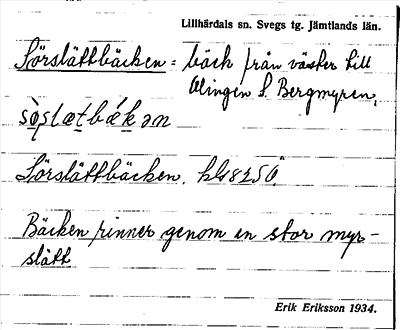 Lillhärdals sn. Svegs tg. Jämtlands län.
Sörslättbäcken = bäck från väster till
Olingen S. Bergmyren.
Sörslättbäcken.
Bäcken rinner genom en stor myr-
slätt
Erik Eriksson 1934.